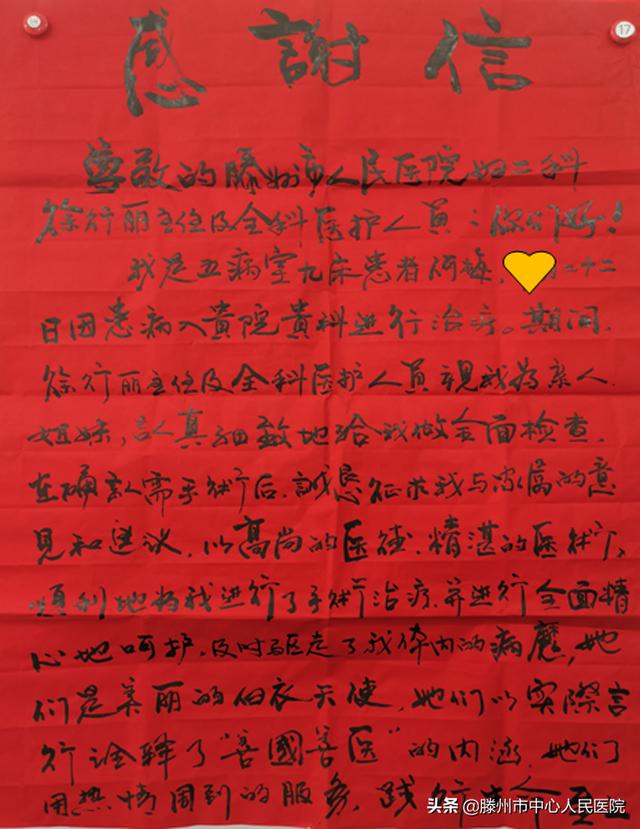 感謝信
尊敬的滕州市人民医院妇二科
徐行丽主任及全科医护人員：你们好！
我是五病室九床患者何梅，二十二
日因患病入貴院貴科进行治疗。期间，
徐行丽主任及全科医护人員視我為亲人
姐妹，认真細致地给我做全面检查，
在确认需手術后，誠恳征求我与家属的意
見和建议，以高尚的医德，精湛的医術，
順利地為我进行了手術治療，并进行全面精
心地呵护，及时驱走了我体内的病魔，她
们是美丽的白衣天使，她们以实際言
行诠释了“善國善医”的内涵，她们
用热情周到的服务，践行
17
头条 @滕州市中心人民医院